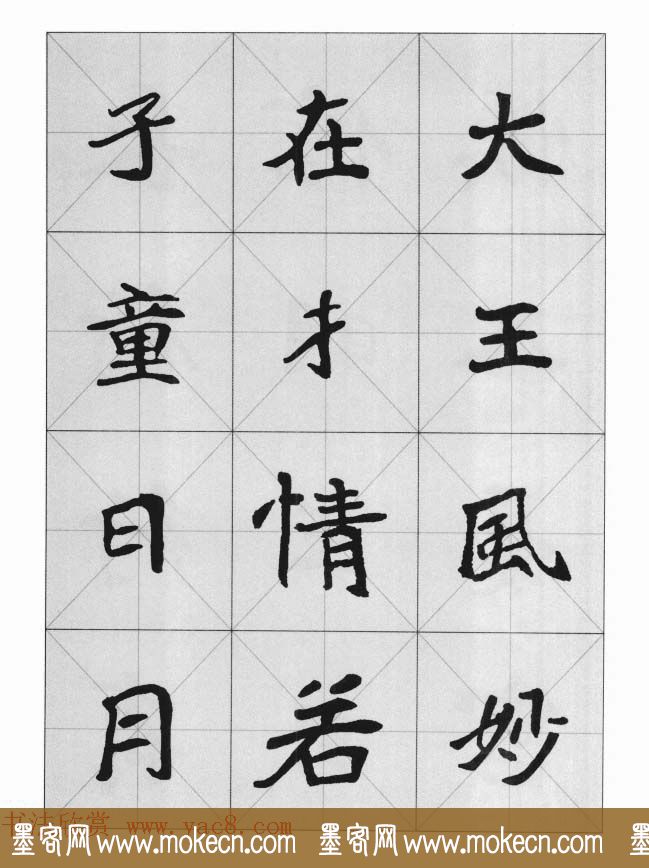 大王風妙
在才情若
子童日月
书法欣赏 www.yac8.com
墨客网 www.mokecn.com 墨客网 www.mokecn.com 墨